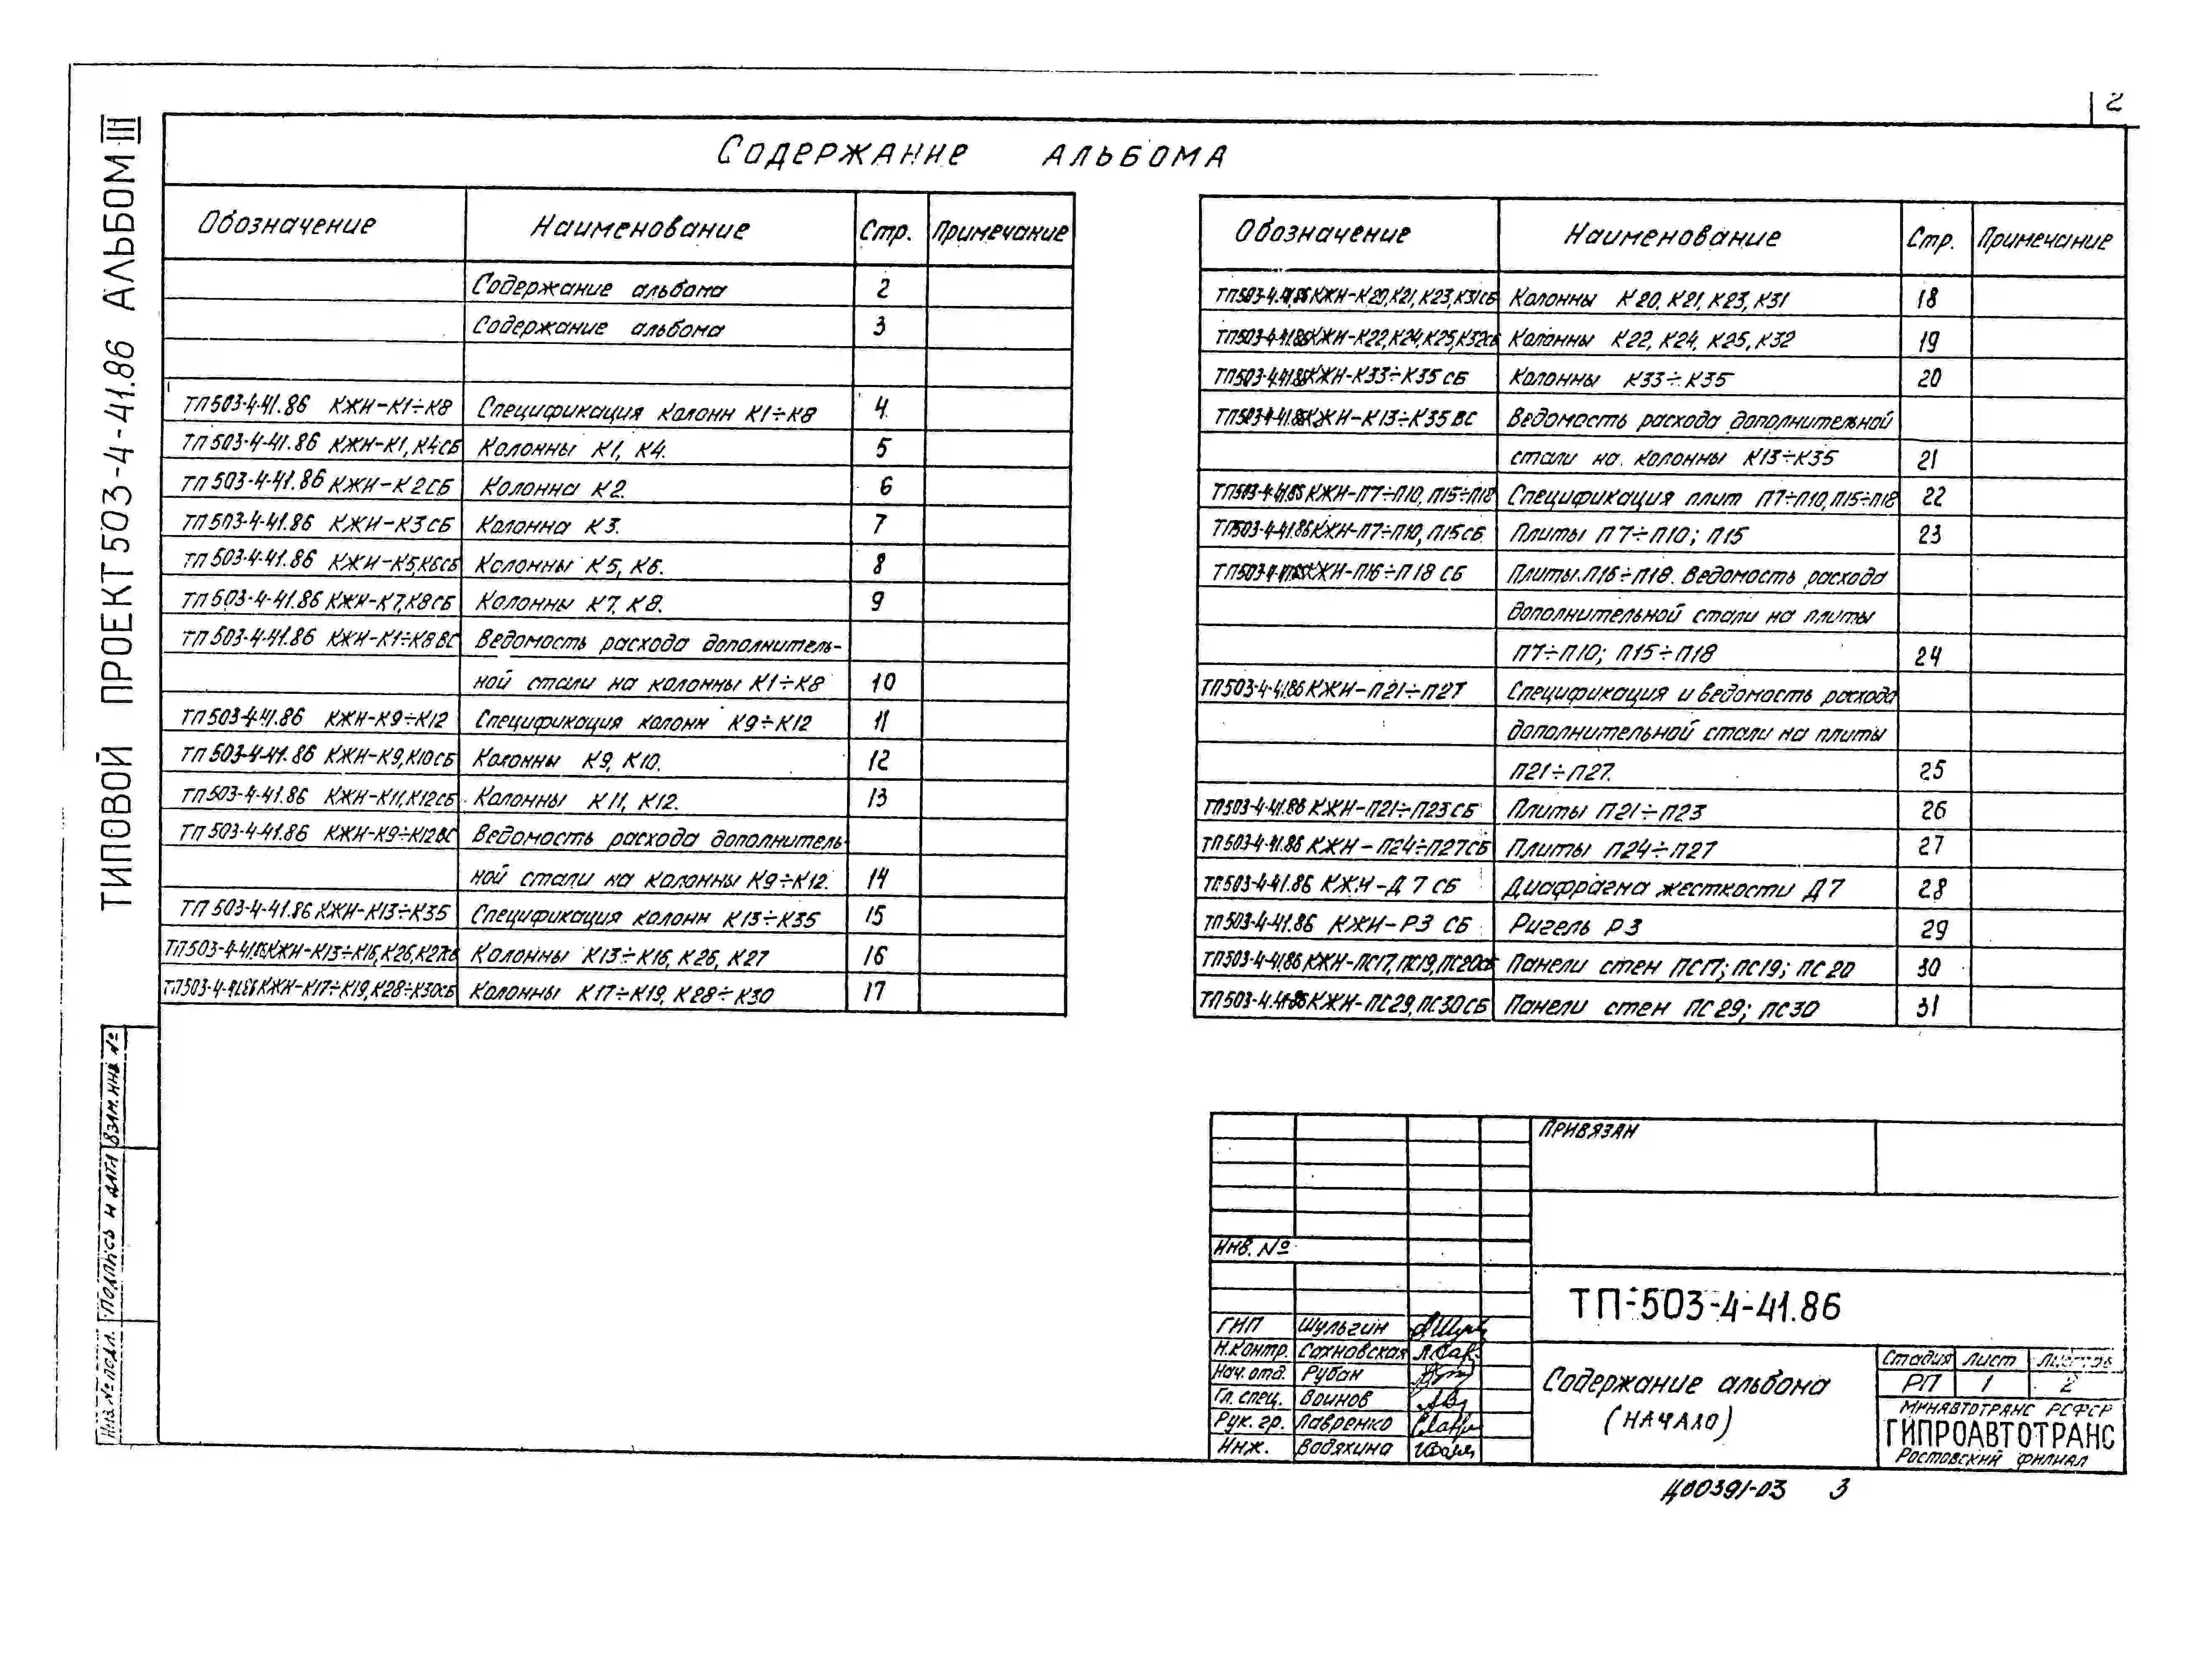 2
ТИПОВОЙ ПРОЕКТ 503-4-41.86 АЛЬБОМ III
СОДЕРЖАНИЕ АЛЬБОМА
Обозначение Наименование Стр. Примечание
Содержание альбома 2
Содержание альбома 3
ТП 503-4-41.86 КЖИ-К1÷К8 Спецификация колонн К1÷К8 4
ТП 503-4-41.86 КЖИ-К1, К4СБ Колонны К1, К4. 5
ТП 503-4-41.86 КЖИ-К2СБ Колонна К2. 6
ТП 503-4-41.86 КЖИ-К3СБ Колонна К3. 7
ТП 503-4-41.86 КЖИ-К5, К6СБ Колонны К5, К6. 8
ТП 503-4-41.86 КЖИ-К7, К8СБ Колонны К7, К8. 9
ТП 503-4-41.86 КЖИ-К1÷К8 ВС Ведомость расхода дополнитель-
ной стали на колонны К1÷К8 10
ТП 503-4-41.86 КЖИ-К9÷К12 Спецификация колонн К9÷К12 11
ТП 503-4-41.86 КЖИ-К9, К10СБ Колонны К9, К10. 12
ТП 503-4-41.86 КЖИ-К11, К12СБ Колонны К11, К12. 13
ТП 503-4-41.86 КЖИ-К9÷К12ВС Ведомость расхода дополнитель-
ной стали на колонны К9÷К12. 14
ТП 503-4-41.86 КЖИ-К13÷К35 Спецификация колонн К13÷К35 15
ТП 503-4-41.86 КЖИ-К13÷К16, К26, К27СБ Колонны К13÷К16, К26, К27 16
ТП 503-4-41.86 КЖИ-К17÷К19, К28÷К30СБ Колонны К17÷К19, К28÷К30 17
Обозначение Наименование Стр. Примечание
ТП 503-4-41.86 КЖИ-К20, К21, К23, К31СБ Колонны К20, К21, К23, К31 18
ТП 503-4-41.86 КЖИ-К22, К24, К25, К32СБ Колонны К22, К24, К25, К32 19
ТП 503-4-41.86 КЖИ-К33÷К35 СБ Колонны К33÷К35 20
ТП 503-4-41.86 КЖИ-К13÷К35 ВС Ведомость расхода дополнительной
стали на колонны К13÷К35 21
ТП 503-4-41.86 КЖИ-П7÷П10, П15÷П18 Спецификация плит П7÷П10, П15÷П18 22
ТП 503-4-41.86 КЖИ-П7÷П10, П15СБ Плиты П7÷П10; П15 23
ТП 503-4-41.86 КЖИ-П16÷П18 СБ Плиты П16÷П18. Ведомость расхода
дополнительной стали на плиты
П7÷П10; П15÷П18 24
ТП 503-4-41.86 КЖИ-П21÷П27 Спецификация и ведомость расхода
дополнительной стали на плиты
П21÷П27. 25
ТП 503-4-41.86 КЖИ-П21÷П23СБ Плиты П21÷П23 26
ТП 503-4-41.86 КЖИ-П24÷П27СБ Плиты П24÷П27 27
ТП 503-4-41.86 КЖИ-Д7 СБ Диафрагма жесткости Д7 28
ТП 503-4-41.86 КЖИ-Р3 СБ Ригель Р3 29
ТП 503-4-41.86 КЖИ-ПС17, ПС19, ПС20СБ Панели стен ПС17; ПС19; ПС20 30
ТП 503-4-41.86 КЖИ-ПС29, ПС30СБ Панели стен ПС29; ПС30 31
Взам. инв. №
Подпись и дата
Инв. № подл.
ПРИВЯЗАН
Инв. №
ТП-503-4-41.86
ГИП Шульгин
Н.контр. Сахновская
Нач. отд. Рубан
Гл. спец. Воинов
Рук. гр. Лавренко
Инж. Водяхина
Содержание альбома
(НАЧАЛО)
Стадия Лист Листов
РП 1 2
МИНАВТОТРАНС РСФСР
ГИПРОАВТОТРАНС
Ростовский филиал
Ц00391-03 3